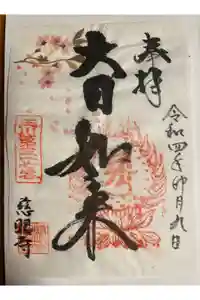 奉拝
令和四年卯月九日
大日如来
慈眼寺